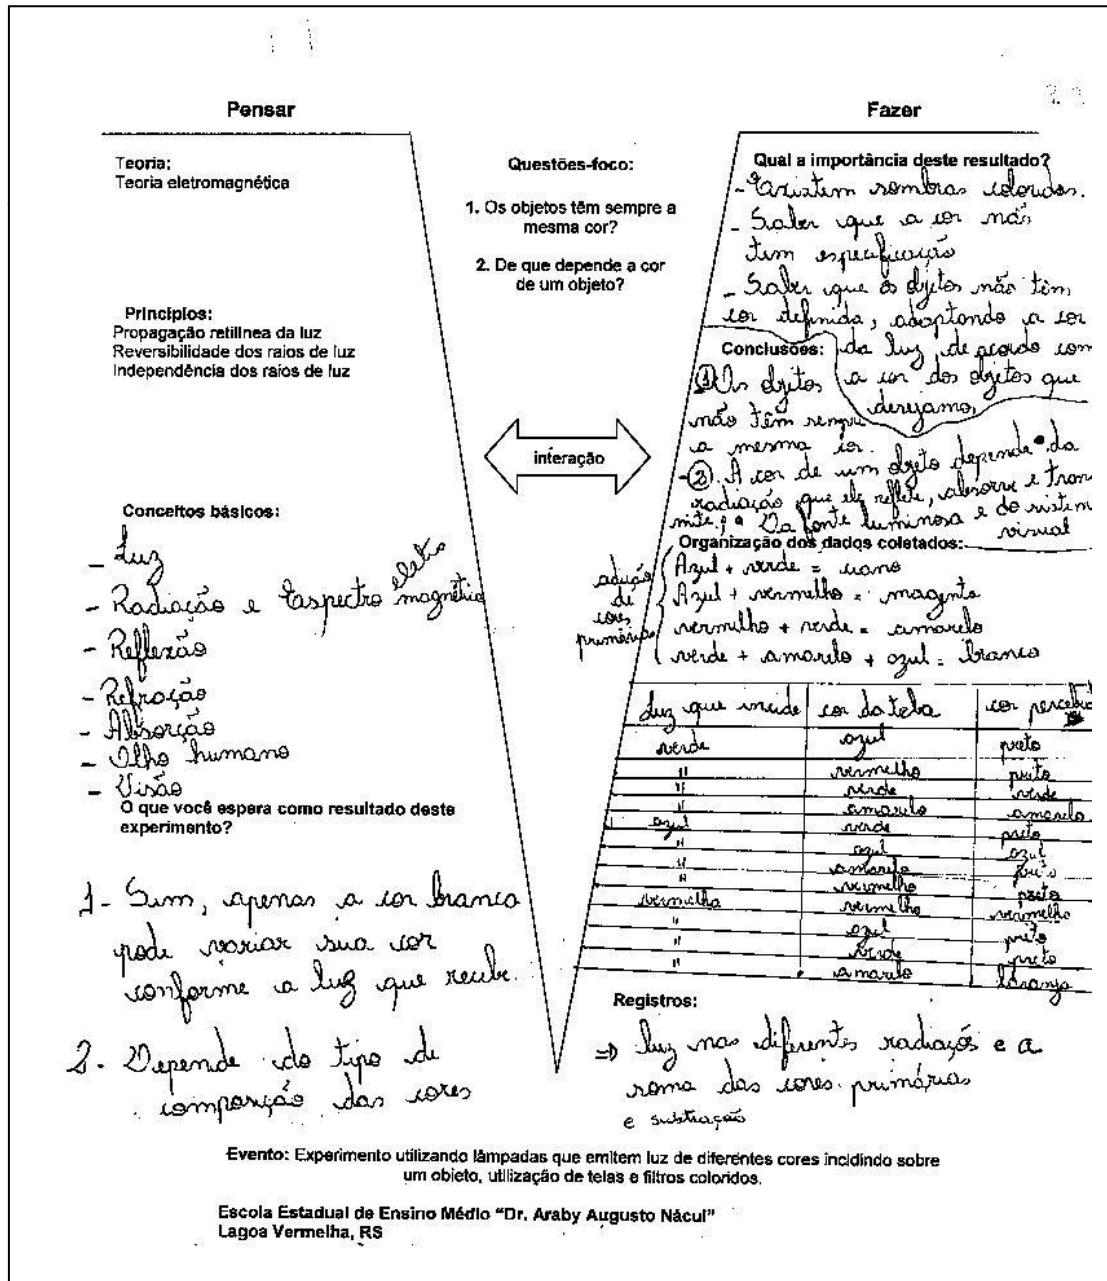 Pensar
Teoria:
Teoria eletromagnética
Princípios:
Propagação retilínea da luz
Reversibilidade dos raios de luz
Independência dos raios de luz
Conceitos básicos:
- Luz
- Radiação e Espectro eletro magnético
- Reflexão
- Refração
- Absorção
- Olho humano
- Visão
O que você espera como resultado deste
experimento?
1- Sim, apenas a cor branca
pode variar sua cor
conforme a luz que recebe.
2- Depende do tipo de
composição das cores
Questões-foco:
1. Os objetos têm sempre a
mesma cor?
2. De que depende a cor
de um objeto?
interação
Fazer
Qual a importância deste resultado?
- Existem sombras coloridas.
- Saber que a cor não
tem especificação
- Saber que os objetos não têm
cor definida, adaptando a cor
da luz de acordo com
a cor dos objetos que
desejamo,
Conclusões:
① Os objetos
não têm sempre
a mesma cor.
- ② A cor de um objeto depende • da
radiação que ele reflete, absorve e trans
mite; • Da fonte luminosa e do sistem
visual
Organização dos dados coletados:
adição
de
cores
primárias
Azul + verde = ciano
Azul + vermelho = magenta
vermelho + verde = amarelo
verde + amarelo + azul = branco
luz que incide cor da tela cor percebid
verde azul preto
" vermelho preto
" verde verde
" amarelo amarelo
azul verde preto
" azul azul
" amarelo preto
" vermelho preto
vermelha vermelho vermelho
" azul preto
" verde preto
" amarelo laranja
Registros:
⇒ luz nas diferentes radiações e a
soma das cores primárias
e subtração
Evento: Experimento utilizando lâmpadas que emitem luz de diferentes cores incidindo sobre
um objeto, utilização de telas e filtros coloridos.
Escola Estadual de Ensino Médio "Dr. Araby Augusto Nácul"
Lagoa Vermelha, RS